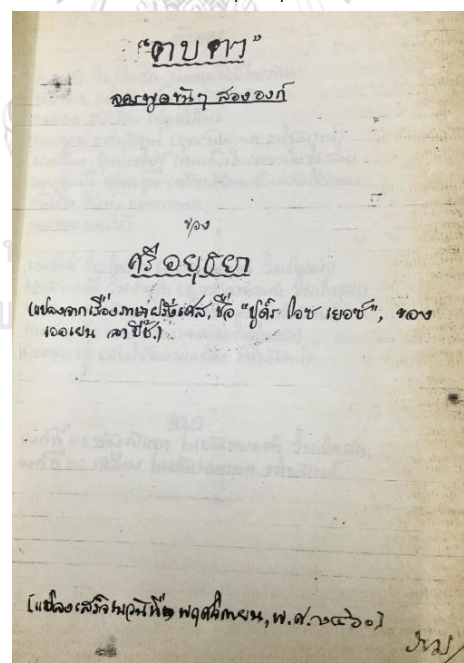 "ตบตา"
ลครพูดขันๆ สององก์
ของ
ศรีอยุธยา
(แปลงจากเรื่องภาษาฝรั่งเศส, ชื่อ "ปูด์ร โอซ เยอซ์", ของ
เออเยน ลาบีช.)
[แปลงเสร็จในวันที่ พฤศจิกายน, พ.ศ. ๒๔๖๐]